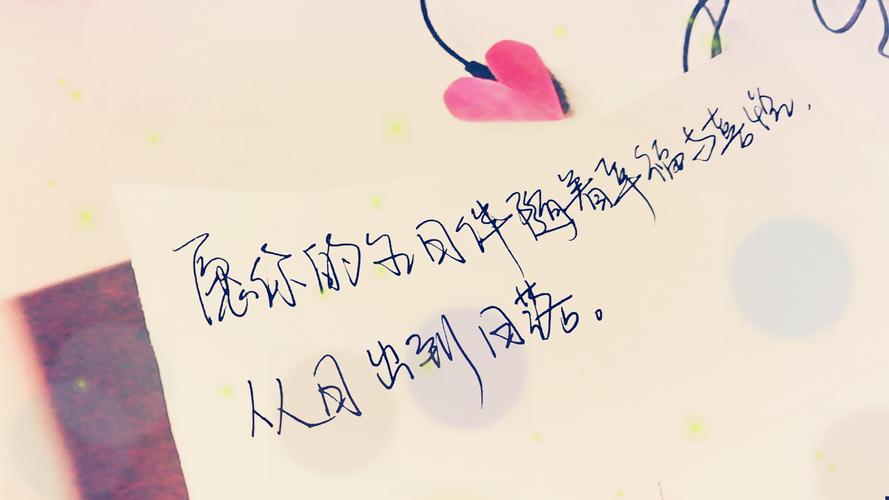 愿你的每日伴随着幸福与喜悦,
从日出到日落。